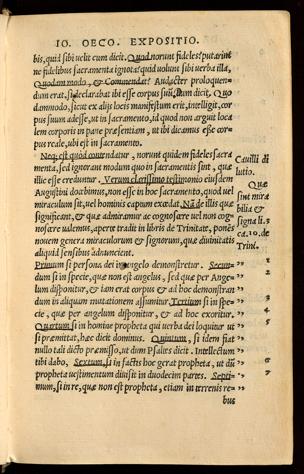 IO. OECO. EXPOSITIO.
bis, quid sibi uelit cum dicit. Quod norunt fideles? putarint
ne fidelibus sacramenta ignota? quid uolunt sibi uerba illa,
Quodammodo, & Commendat? Audacter proloquen-
dum erat, si declarabat ibi esse corpus suum. Dum dicit, Quo
dammodo, sicut ex alijs locis manifestum erit, intelligit, cor-
pus suum adesse, ut in sacramento, id quod non arguit loca
lem corporis in pane præsentiam, ut ibi dicamus esse cor-
pus reale, ubi est in sacramento.
Neq; est quòd contendatur, norunt quidem fideles sacra
menta, sed ignorant modum quo in sacramentis sint, quæ
illic esse creduntur. Verum clarissimo testimonio eiusdem
Augustini docebimus, non esse in hoc sacramento, quod uel
miraculum sit, uel hominis captum excedat. Nã de illis quæ
significant, & quæ admiramur ac cognoscere uel non cog-
noscere ualemus, aperte tradit in libris de Trinitate, ponẽs
nouem genera miraculorum & signorum, quæ diuinitatis
aliquid sensibus adnuncient.
Cauilli di
lutio.
Quæ
sint mira
bilia &
signa li. 3
ca. 10. de
Trini.
Primum si persona dei in angelo demonstretur. Secun- 1
dum si in specie, quæ non est angelus, sed quæ per Ange- 2
lum disponitur, & iam erat corpus & ad hoc demonstran
dum in aliquam mutationem assumitur. Tertium si in spe- 3
cie, quæ per angelum disponitur, & ad hoc exoritur.
Quartum si in homine propheta qui uerba dei loquitur ut 4
si præmittat, hæc dicit dominus. Quintum, si idem fiat 5
nullo tali dicto præmisso, ut dum Psaltes dicit. Intellectum
tibi dabo, Sextum, si in factis hoc gerat propheta, ut dũ 6
propheta uestimentum diuisit in duodecim partes. Septi- 7
mum, si in re, quæ non est propheta, etiam in terrenis re-
bus